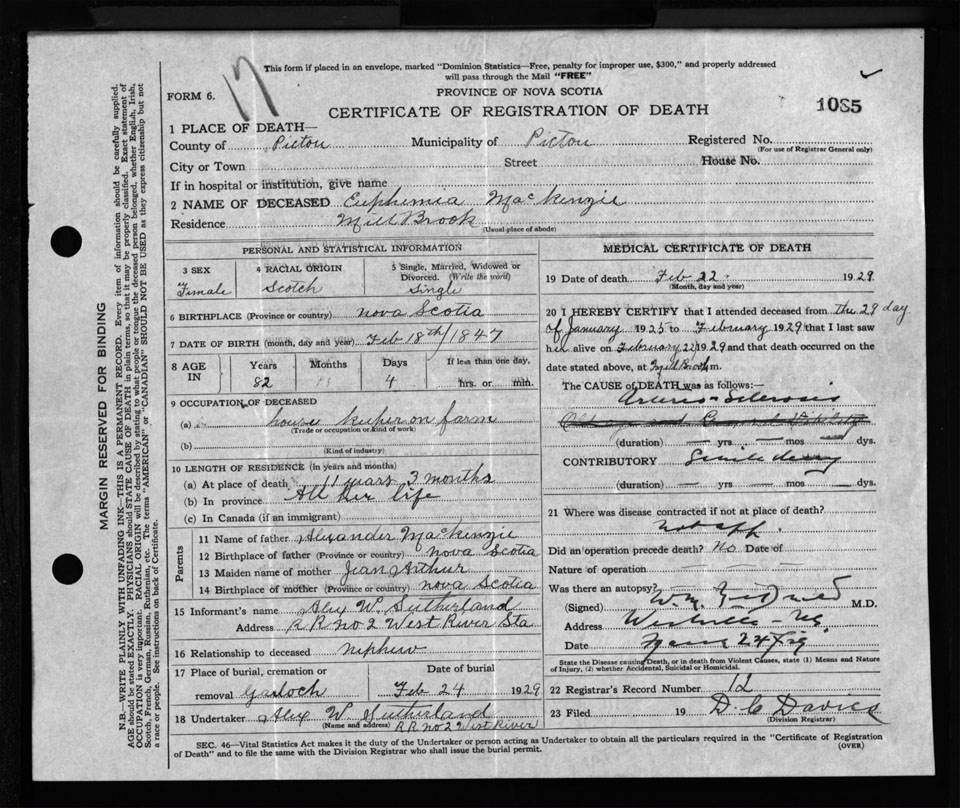 17
This form if placed in an envelope, marked "Dominion Statistics—Free, penalty for improper use, $300," and properly addressed
will pass through the Mail "FREE"
FORM 6.
PROVINCE OF NOVA SCOTIA
CERTIFICATE OF REGISTRATION OF DEATH
1085
1 PLACE OF DEATH—
County of Pictou Municipality of Pictou Registered No.
(For use of Registrar General only)
City or Town Street House No.
If in hospital or institution, give name
2 NAME OF DECEASED Euphemia MacKenzie
Residence Mill Brook
(Usual place of abode)
PERSONAL AND STATISTICAL INFORMATION
3 SEX 4 RACIAL ORIGIN 5 Single, Married, Widowed or
Divorced. (Write the word)
Female Scotch Single
6 BIRTHPLACE (Province or country) Nova Scotia
7 DATE OF BIRTH (month, day and year) Feb 18th/1847
8 AGE IN Years Months Days If less than one day,
82 4 hrs. or min.
9 OCCUPATION OF DECEASED
(a) house keeper on farm
(Trade or occupation or kind of work)
(b)
(Kind of industry)
10 LENGTH OF RESIDENCE (in years and months)
(a) At place of death 11 years 3 months
(b) In province All her life
(c) In Canada (if an immigrant)
Parents
11 Name of father Alexander MacKenzie
12 Birthplace of father (Province or country) Nova Scotia
13 Maiden name of mother Jean Arthur
14 Birthplace of mother (Province or country) nova Scotia
15 Informant's name Alex W. Sutherland
Address R R no 2 West River Sta
16 Relationship to deceased nephew
17 Place of burial, cremation or Date of burial
removal Gairloch Feb 24 1929
18 Undertaker Alex W Sutherland
(Name and address) R.R no 2 West River
MEDICAL CERTIFICATE OF DEATH
19 Date of death Feb 22. 1929
(Month, day and year)
20 I HEREBY CERTIFY that I attended deceased from the 29 day
of January 1925 to February 1929 that I last saw
her alive on February 22/1929 and that death occurred on the
date stated above, at Mill Brook m.
The CAUSE OF DEATH was as follows:—
Arterio-Sclerosis
Old age and General Debility
(duration) yrs mos dys.
CONTRIBUTORY
(duration) yrs. mos dys.
21 Where was disease contracted if not at place of death?
not app.
Did an operation precede death? No Date of
Nature of operation
Was there an autopsy?
(Signed) M.D.
Address Westville - NS.
Date 24
State the Disease causing Death, or in death from Violent Causes, state (1) Means and Nature
of Injury, (2) whether Accidental, Suicidal or Homicidal.
22 Registrar's Record Number 12
23 Filed 19 D. C Davies
(Division Registrar)
SEC. 46—Vital Statistics Act makes it the duty of the Undertaker or person acting as Undertaker to obtain all the particulars required in the "Certificate of Registration
of Death" and to file the same with the Division Registrar who shall issue the burial permit.
(OVER)
MARGIN RESERVED FOR BINDING
N.B.—WRITE PLAINLY WITH UNFADING INK—THIS IS A PERMANENT RECORD. Every item of information should be carefully supplied.
AGE should be stated EXACTLY. PHYSICIANS should STATE CAUSE OF DEATH in plain terms, so that it may be properly classified. Exact statement of
OCCUPATION is very important. RACIAL ORIGIN will be described by stating to what people or tongue the deceased person belonged, whether English, Irish,
Scotch, French, German, Russian, Ruthenian, etc. The terms "AMERICAN" or "CANADIAN" SHOULD NOT BE USED as they express citizenship but not
a race or people. See instructions on back of Certificate.